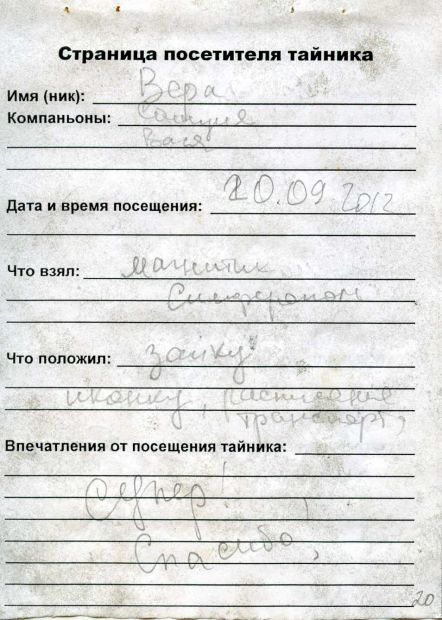 Страница посетителя тайника
Имя (ник): Вера
Компаньоны:
Вася
Дата и время посещения: 20.09 2012
Что взял: магнитик
Симферополь
Что положил: зайку
иконку, расписание
транспорт,
Впечатления от посещения тайника:
Супер!
Спасибо,
20